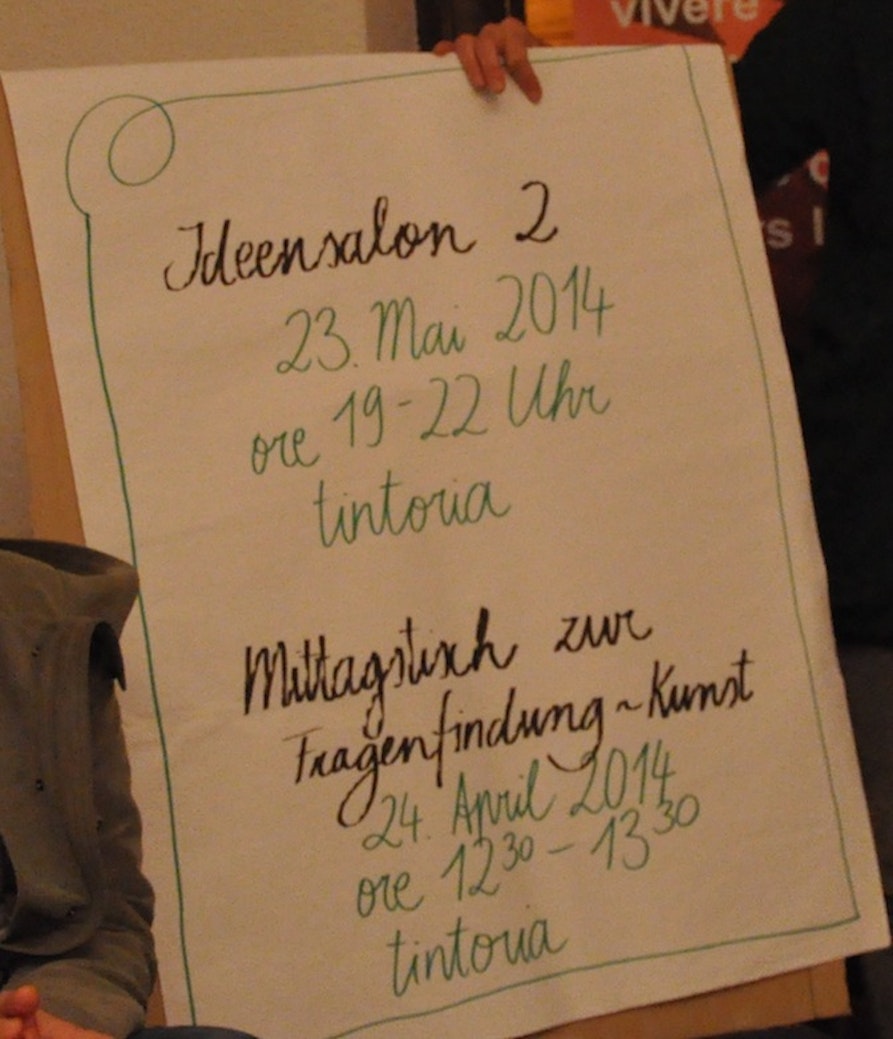 vivere
Ideensalon 2
23. Mai 2014
ore 19-22 Uhr
tintoria
Mittagstisch zur
Fragenfindung~Kunst
24. April 2014
ore 12³⁰ - 13³⁰
tintoria